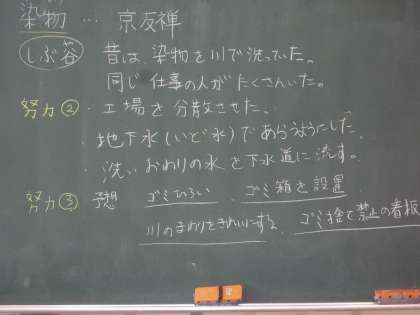 染物 … 京友禅
しぶ谷 昔は、染物を川で洗っていた。
同じ仕事の人がたくさんいた。
努力② ・工場を分散させた。
・地下水(いど水)であらうようにした。
・洗いおわりの水を下水道に流す。
努力③ 予想 ゴミひろい ゴミ箱を設置
川のまわりをきれいにする ゴミ捨て禁止の看板